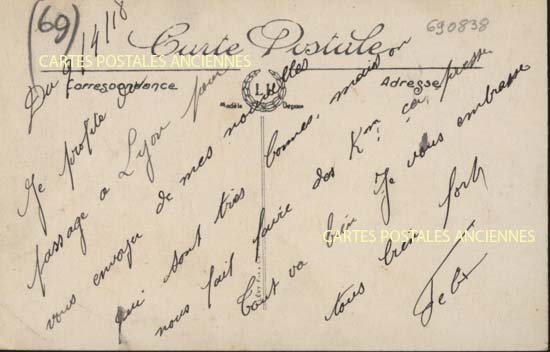 (69)
690838
Carte Postale
CARTES POSTALES ANCIENNES
Correspondance
Adresse
LR
Modèle Déposé
Du 9/4/18
Je profite du
passage a Lyon pour
vous envoyer de mes nouvelles
qui sont très bonnes, mais on
nous fait faire des Km ça presse
tout va bien Je vous embrasse
tous bien fort
Felix
CARTES POSTALES ANCIENNES